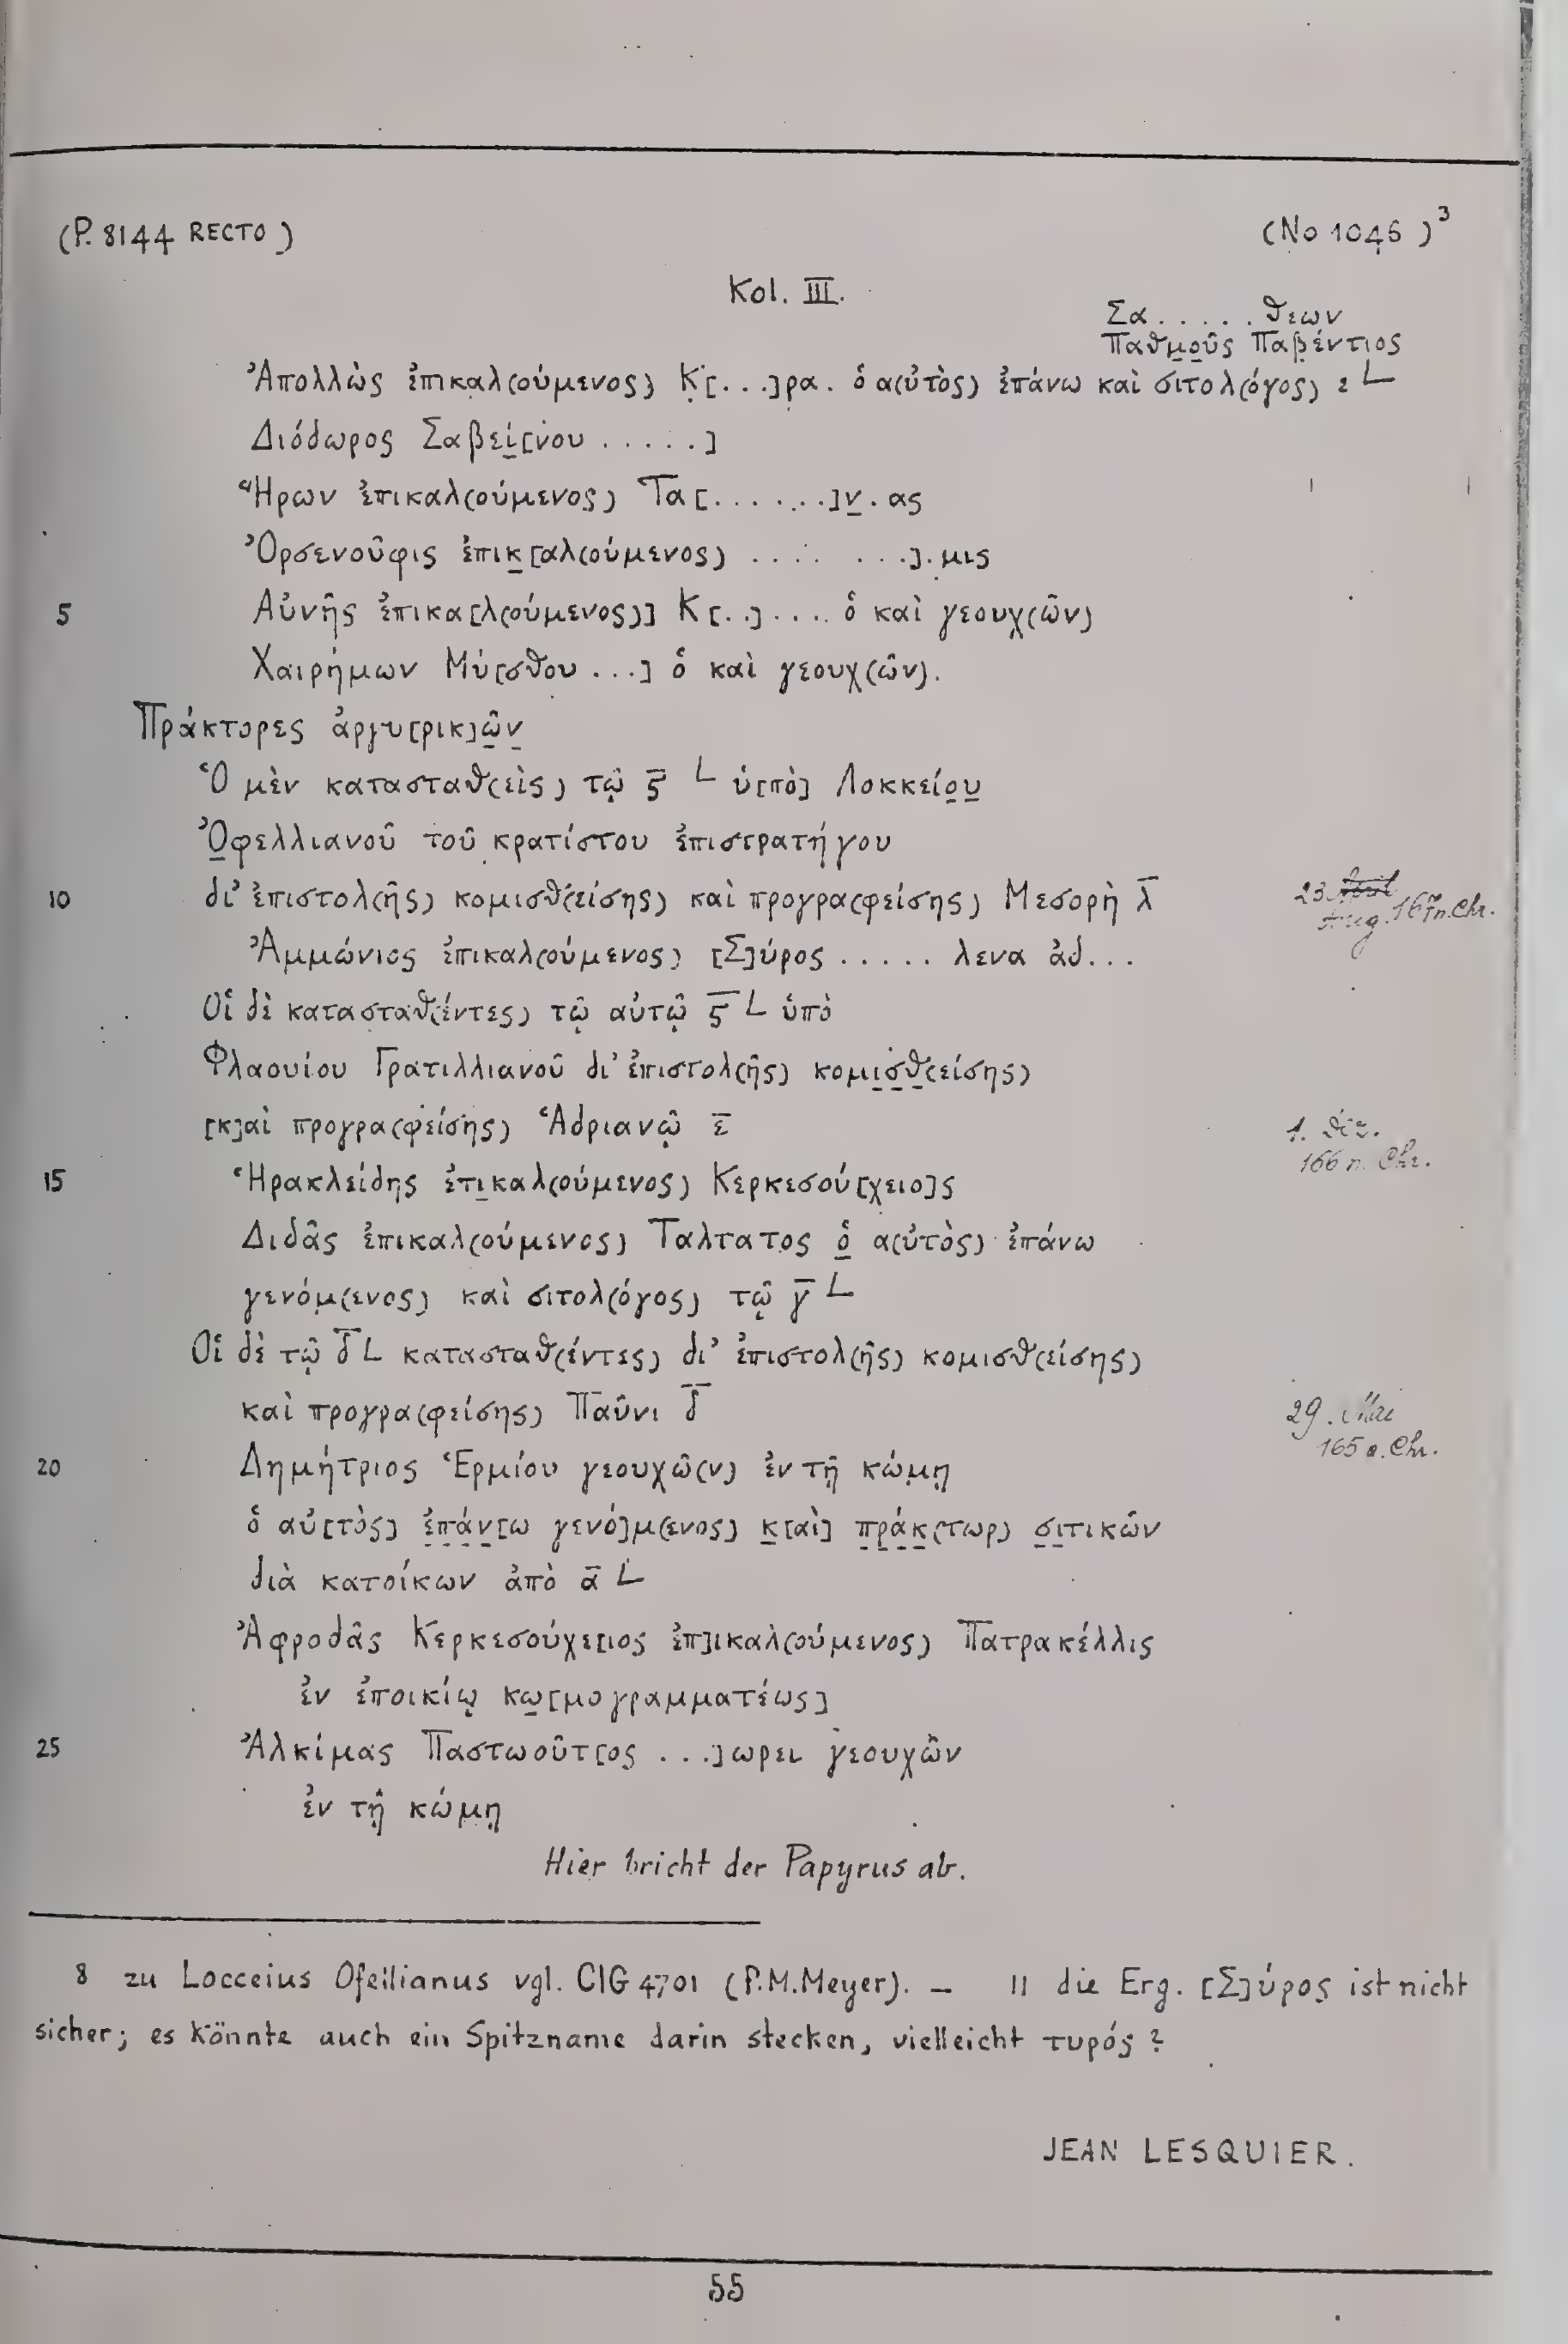 (P. 8144 RECTO)
(No 1046)³
Kol. III.
Σα . . . . . θεων
Παθμοῦς Παβέντιος
Ἀπολλὼς ἐπικαλ(ούμενος) Κ[. . .]ρα. ὁ α(ὐτὸς) ἐπάνω καὶ σιτολ(όγος) ε L
Διόδωρος Σαβεί[νου . . . . .]
Ἥρων ἐπικαλ(ούμενος) Τα[. . . . . . .]ν. ας
Ὀρσενοῦφις ἐπικ[αλ(ούμενος) . . . . . . .]. μις
5 Αὐνῆς ἐπικα[λ(ούμενος)] Κ[. .] . . . . ὁ καὶ γεουχ(ῶν)
Χαιρήμων Μύ[σθου . . .] ὁ καὶ γεουχ(ῶν).
Πράκτορες ἀργυ[ρικ]ῶν
Ὁ μὲν κατασταθ(εὶς) τῷ ϛ̅ L ὑ[πὸ] Λοκκείου
Ὀφελλιανοῦ τοῦ κρατίστου ἐπιστρατήγου
10 δι' ἐπιστολ(ῆς) κομισθ(είσης) καὶ προγρα(φείσης) Μεσορὴ λ̅
23 April
Aug. 167 n. Chr.
Ἀμμώνιος ἐπικαλ(ούμενος) [Σ]ύρος . . . . . λενα ἀδ...
Οἱ δὲ κατασταθ(έντες) τῷ αὐτῷ ϛ̅ L ὑπὸ
Φλαουίου Γρατιλλιανοῦ δι' ἐπιστολ(ῆς) κομισθ(είσης)
[κ]αὶ προγρα(φείσης) Ἁδριανῷ ε̅
1. Dez.
166 n. Chr.
15 Ἡρακλείδης ἐπικαλ(ούμενος) Κερκεσού[χειο]ς
Διδᾶς ἐπικαλ(ούμενος) Ταλτατος ὁ α(ὐτὸς) ἐπάνω
γενόμ(ενος) καὶ σιτολ(όγος) τῷ γ̅ L
Οἱ δὲ τῷ δ̅ L κατασταθ(έντες) δι' ἐπιστολ(ῆς) κομισθ(είσης)
καὶ προγρα(φείσης) Παῦνι δ̅
29. Mai
165 n. Chr.
20 Δημήτριος Ἑρμίου γεουχῶ(ν) ἐν τῇ κώμῃ
ὁ αὐ[τὸς] ἐπάν[ω γενό]μ(ενος) κ[αὶ] πράκ(τωρ) σιτικῶν
διὰ κατοίκων ἀπὸ α̅ L
Ἀφροδᾶς Κερκεσούχε[ιος ἐπ]ικαλ(ούμενος) Πατρακέλλις
ἐν ἐποικίῳ κω[μογραμματέως]
25 Ἀλκίμας Παστωοῦτ[ος . . .]ωρει γεουχῶν
ἐν τῇ κώμῃ
Hier bricht der Papyrus ab.
8 zu Locceius Ofellianus vgl. CIG 4701 (P.M.Meyer). – 11 die Erg. [Σ]ύρος ist nicht
sicher; es könnte auch ein Spitzname darin stecken, vielleicht τυρός?
JEAN LESQUIER.
55